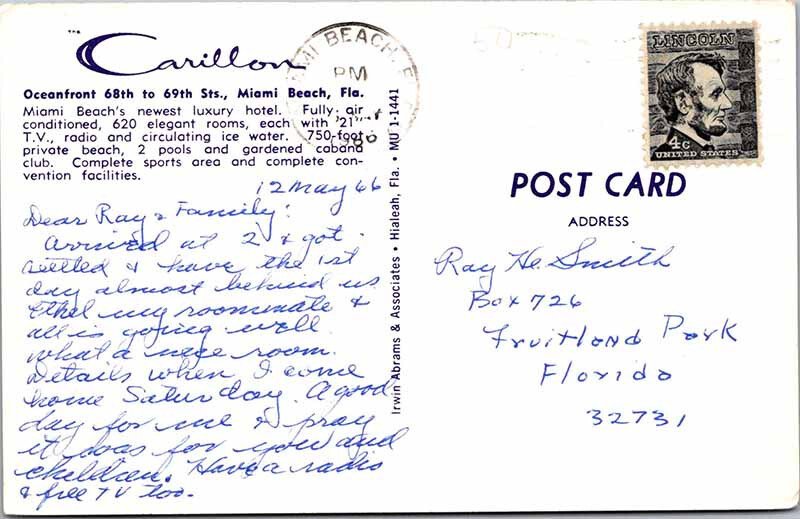 THE
Carillon
Oceanfront 68th to 69th Sts., Miami Beach, Fla.
Miami Beach's newest luxury hotel. Fully air
conditioned, 620 elegant rooms, each with '21"
T.V., radio and circulating ice water. 750-foot
private beach, 2 pools and gardened cabana
club. Complete sports area and complete con-
vention facilities.
12 May 66
Dear Ray & Family:
Arrived at 2 & got
settled & have the 1st
day almost behind us
Ethel my roommate &
all is going well.
What a nice room.
Details when I come
home Saturday. A good
day for me & pray
it was for you and
children. Have a radio
& free TV too.
Irwin Abrams & Associates • Hialeah, Fla. • MU 1-1441
MIAMI BEACH, F
PM
LINCOLN
4c
UNITED STATES
POST CARD
ADDRESS
Ray H. Smith
Box 726
Fruitland Park
Florida
32731